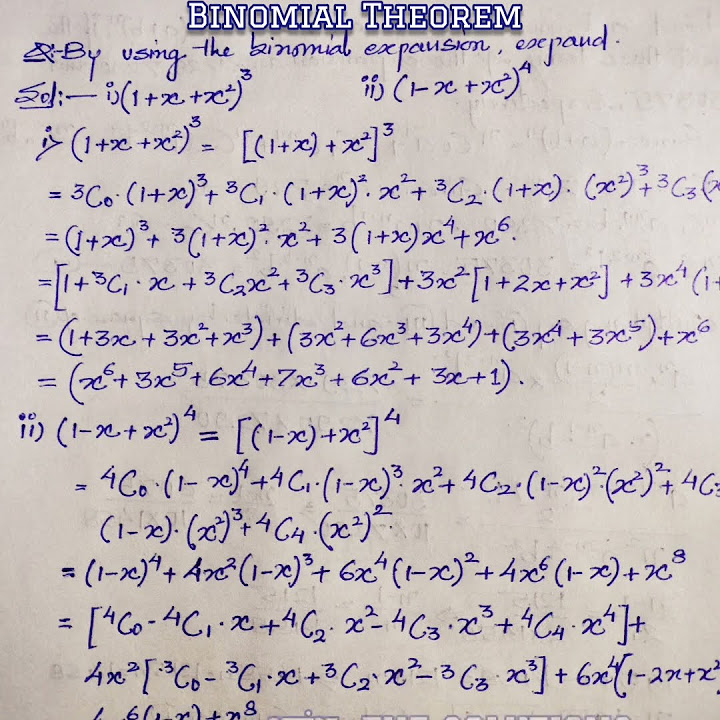 BINOMIAL THEOREM
Q:- By using the binomial expansion, expand.
Sol:- i) (1+x+x²)³ ii) (1-x+x²)⁴
i) (1+x+x²)³ = [(1+x)+x²]³
= ³C₀·(1+x)³+ ³C₁·(1+x)²·x²+ ³C₂·(1+x)·(x²)³+ ³C₃(x
= (1+x)³+ 3(1+x)²·x²+ 3(1+x)x⁴+x⁶.
= [1+³C₁·x+³C₂x²+³C₃·x³]+3x²[1+2x+x²]+3x⁴(1+
= (1+3x+3x²+x³)+(3x²+6x³+3x⁴)+(3x⁴+3x⁵)+x⁶
= (x⁶+3x⁵+6x⁴+7x³+6x²+3x+1).
ii) (1-x+x²)⁴ = [(1-x)+x²]⁴
= 4C₀·(1-x)⁴+4C₁·(1-x)³·x²+4C₂·(1-x)²·(x²)²+4C₃
(1-x)·(x²)³+4C₄·(x²)².
= (1-x)⁴+4x²(1-x)³+6x⁴(1-x)²+4x⁶(1-x)+x⁸
= [⁴C₀-4C₁·x+4C₂·x²-4C₃·x³+4C₄·x⁴]+
4x²[·³C₀-³C₁·x+³C₂·x²-³C₃·x³]+6x⁴[1-2x+x²
4x⁶(1-x)+x⁸